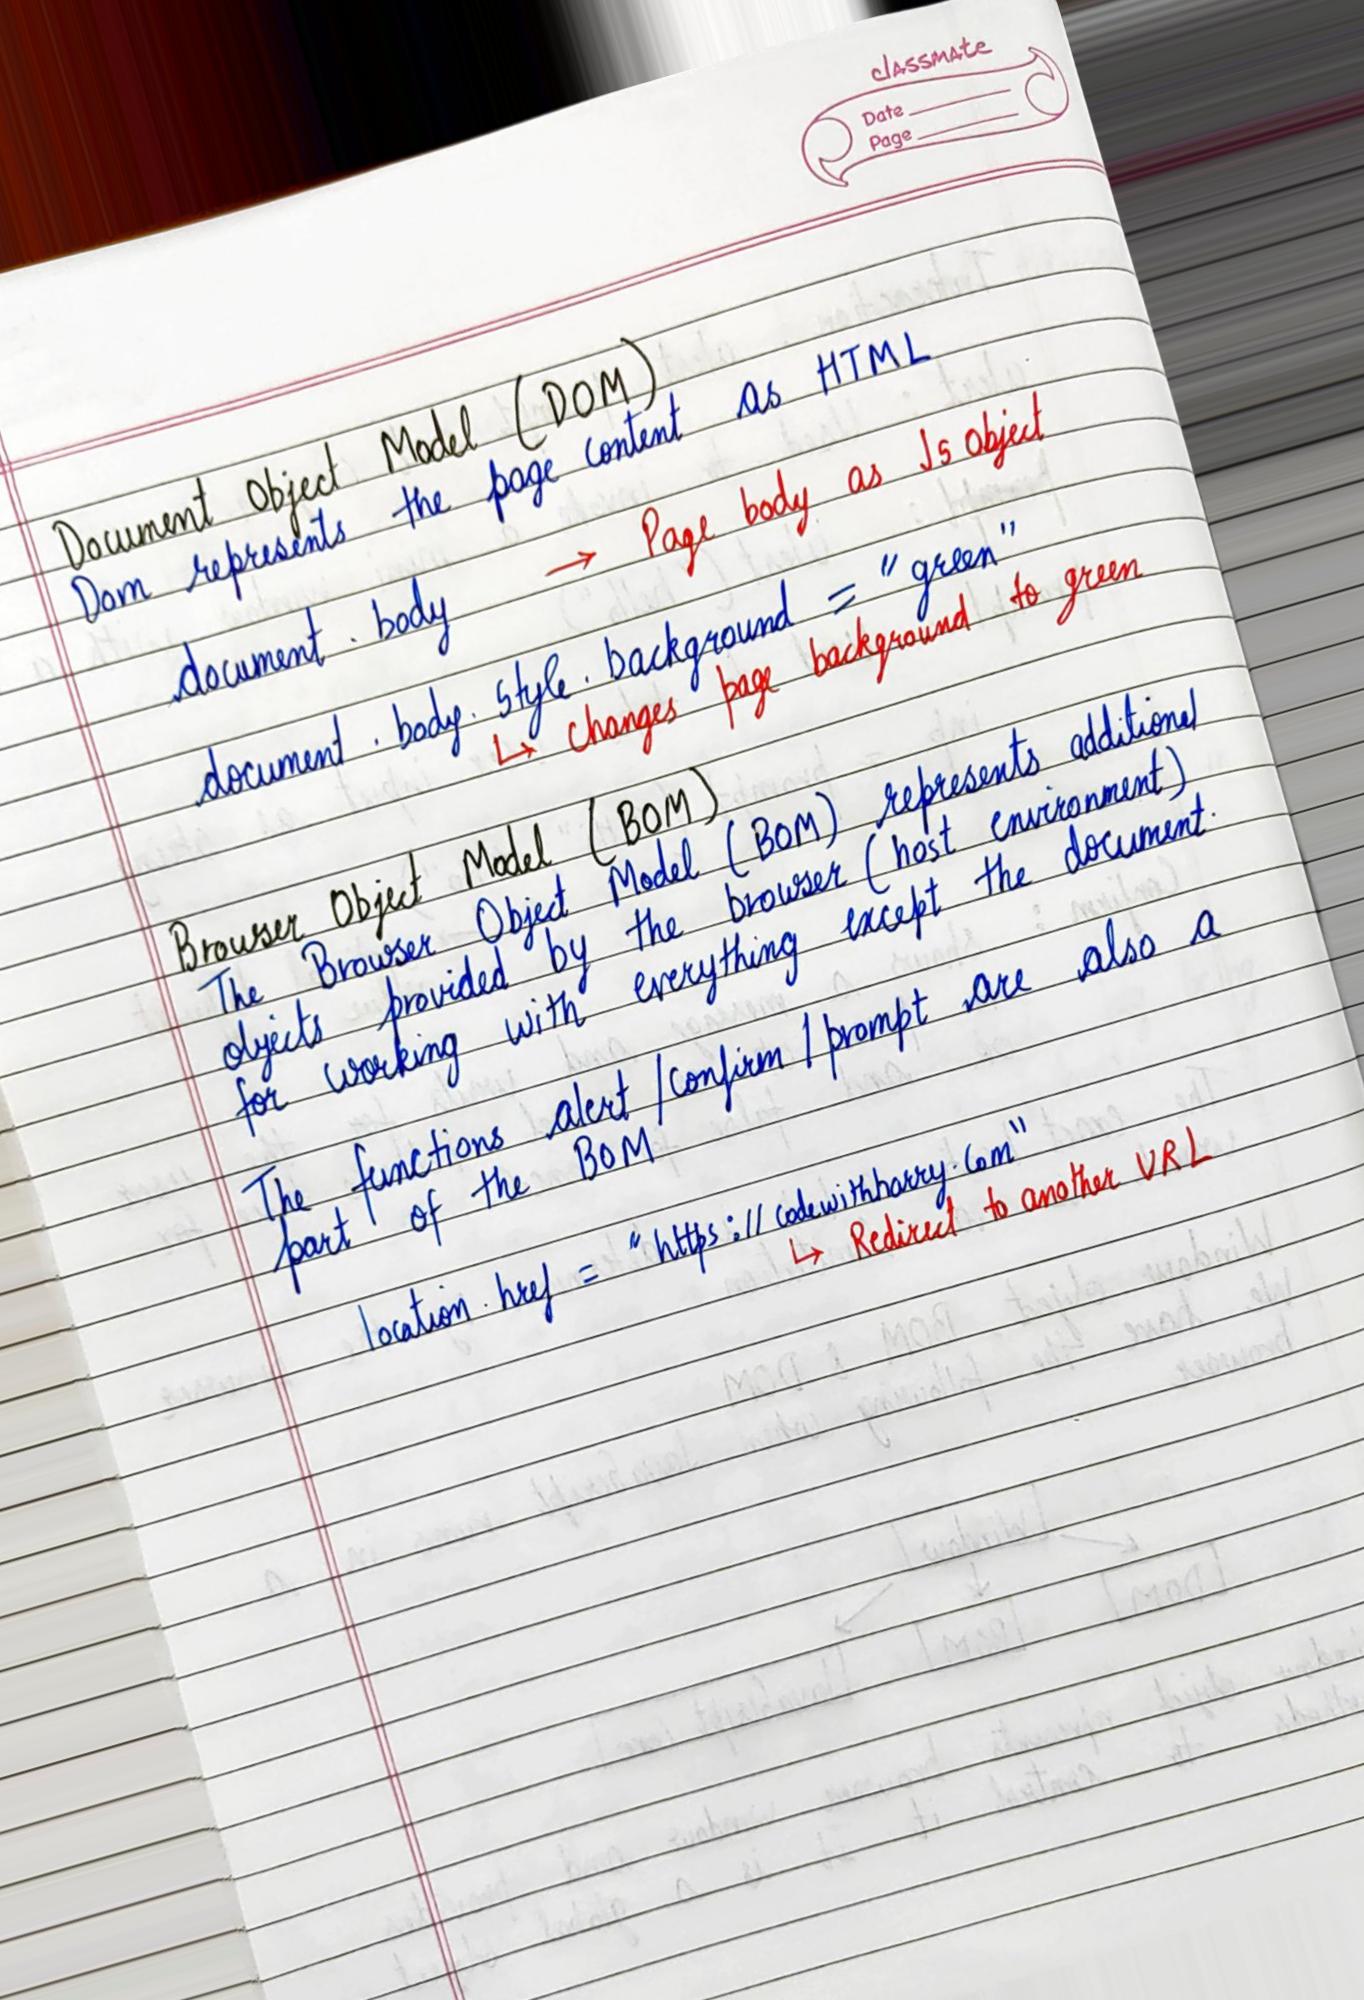 classmate
Date
Page
Document Object Model (DOM)
Dom represents the page content as HTML
document . body → Page body as Js object
document . body . style . background = "green"
↳ changes page background to green
Browser Object Model (BOM)
The Browser Object Model (BOM) represents additional
objects provided by the browser (host environment)
for working with everything except the document.
The functions alert / confirm / prompt are also a
part of the BOM
location . href = "https://codewithharry.com"
↳ Redirect to another URL